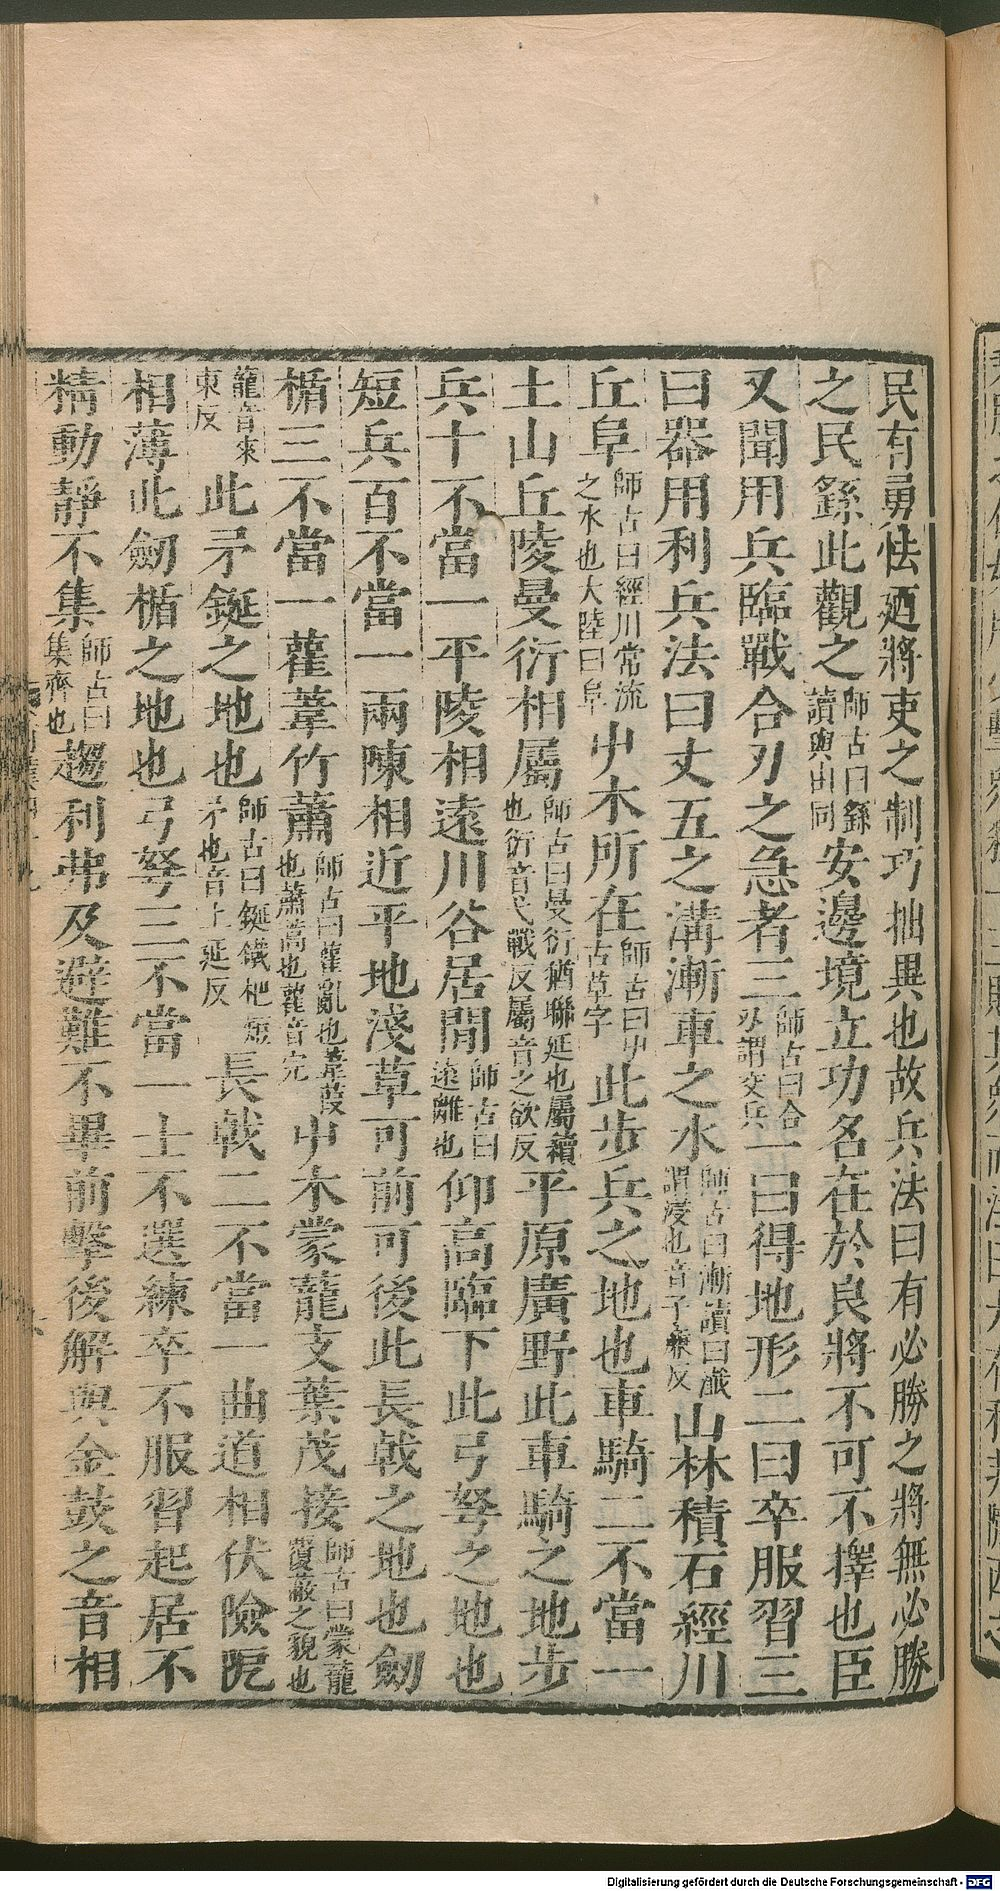 民有勇怯廼將吏之制巧拙異也故兵法曰有必勝之將無必勝
之民繇此觀之師古曰繇讀與由同安邊境立功名在於良將不可不擇也臣
又聞用兵臨戰合刃之急者三師古曰合刃謂交兵一曰得地形二曰卒服習三
曰器用利兵法曰丈五之溝漸車之水師古曰漸讀曰瀸謂浸也音子廉反山林積石經川
丘阜師古曰經川常流之水也大陸曰阜屮木所在師古曰屮古草字此步兵之地也車騎二不當一
土山丘陵曼衍相屬師古曰曼衍猶聯延也屬續也衍音弋戰反屬音之欲反平原廣野此車騎之地步
兵十不當一平陵相遠川谷居閒師古曰遠離也仰高臨下此弓弩之地也
短兵百不當一兩陳相近平地淺草可前可後此長戟之地也劒
楯三不當一萑葦竹蕭師古曰萑薍也葦葭也蕭蒿也萑音完屮木蒙蘢支葉茂接師古曰蒙蘢覆蔽之貌也
蘢音來東反此矛鋋之地也師古曰鋋鐵杷短矛也音上延反長戟二不當一曲道相伏險阸
相薄此劒楯之地也弓弩三不當一士不選練卒不服習起居不
精動靜不集師古曰集齊也趨利弗及避難不畢前擊後解與金鼓之音相
Digitalisierung gefördert durch die Deutsche Forschungsgemeinschaft - DFG